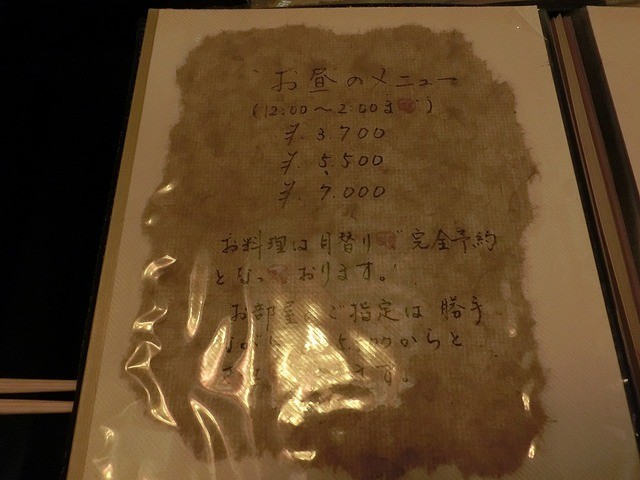 お昼のメニュー
(12:00～2:00ま)
¥.3.700
¥.5.500
¥.7.000
お料理は月替り 完全予約
となっ おります。
お部屋 ご指定は 勝手
からと
す。